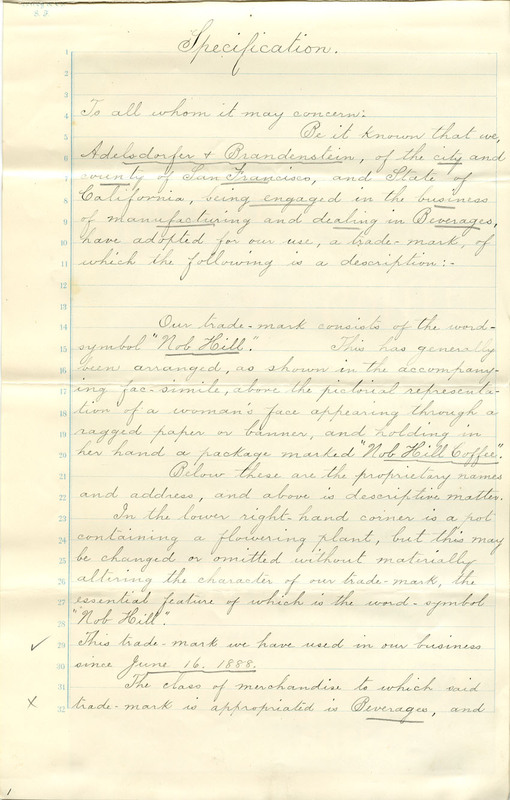 Specification.
1
2
3
4 To all whom it may concern:
5 Be it known that we,
6 Adelsdorfer & Brandenstein, of the city and
7 county of San Francisco, and State of
8 California, being engaged in the business
9 of manufacturing and dealing in Beverages,
10 have adopted for our use, a trade-mark, of
11 which the following is a description:-
12
13
14 Our trade-mark consists of the word-
15 symbol "Nob Hill". This has generally
16 been arranged, as shown in the accompany-
17 ing fac-simile, above the pictorial representa-
18 tion of a woman's face appearing through a
19 ragged paper or banner, and holding in
20 her hand a package marked "Nob Hill Coffee".
21 Below these are the proprietary names
22 and address, and above is descriptive matter.
23 In the lower right-hand corner is a pot
24 containing a flowering plant, but this may
25 be changed or omitted without materially
26 altering the character of our trade-mark, the
27 essential feature of which is the word-symbol
28 "Nob Hill".
29 This trade-mark we have used in our business
30 since June 16, 1888.
31 The class of merchandise to which said
32 trade-mark is appropriated is Beverages, and